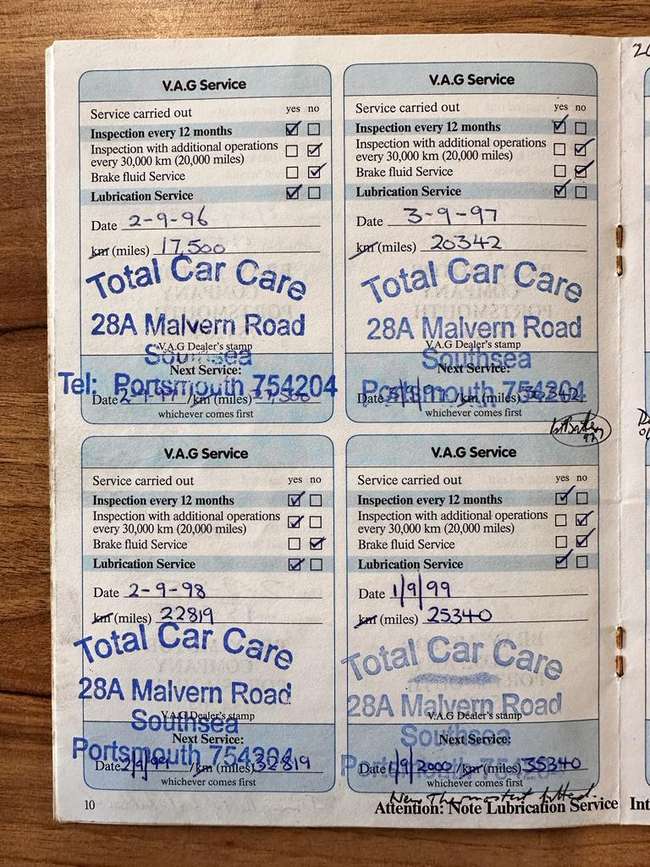 V.A.G Service
Service carried out yes no
Inspection every 12 months
Inspection with additional operations
every 30,000 km (20,000 miles)
Brake fluid Service
Lubrication Service
Date 2-9-96
km (miles) 17,500
Total Car Care
28A Malvern Road
V.A.G Dealer's stamp
Southsea
Next Service:
Tel: Portsmouth 754204
Date 2-9-97 /km (miles)
whichever comes first
V.A.G Service
Service carried out yes no
Inspection every 12 months
Inspection with additional operations
every 30,000 km (20,000 miles)
Brake fluid Service
Lubrication Service
Date 3-9-97
km (miles) 20342
Total Car Care
28A Malvern Road
V.A.G Dealer's stamp
Southsea
Next Service:
Portsmouth 754204
Date /km (miles) 30342
whichever comes first
V.A.G Service
Service carried out yes no
Inspection every 12 months
Inspection with additional operations
every 30,000 km (20,000 miles)
Brake fluid Service
Lubrication Service
Date 2-9-98
km (miles) 22819
Total Car Care
28A Malvern Road
V.A.G Dealer's stamp
Southsea
Next Service:
Portsmouth 754204
Date 2/9/99 /km (miles) 32819
whichever comes first
V.A.G Service
Service carried out yes no
Inspection every 12 months
Inspection with additional operations
every 30,000 km (20,000 miles)
Brake fluid Service
Lubrication Service
Date 1/9/99
km (miles) 25340
Total Car Care
28A Malvern Road
V.A.G Dealer's stamp
Southsea
Next Service:
Portsmouth 75420
Date 1/9/2000 /km (miles) 35340
whichever comes first
New Thermostat fitted
10
Attention: Note Lubrication Service Int